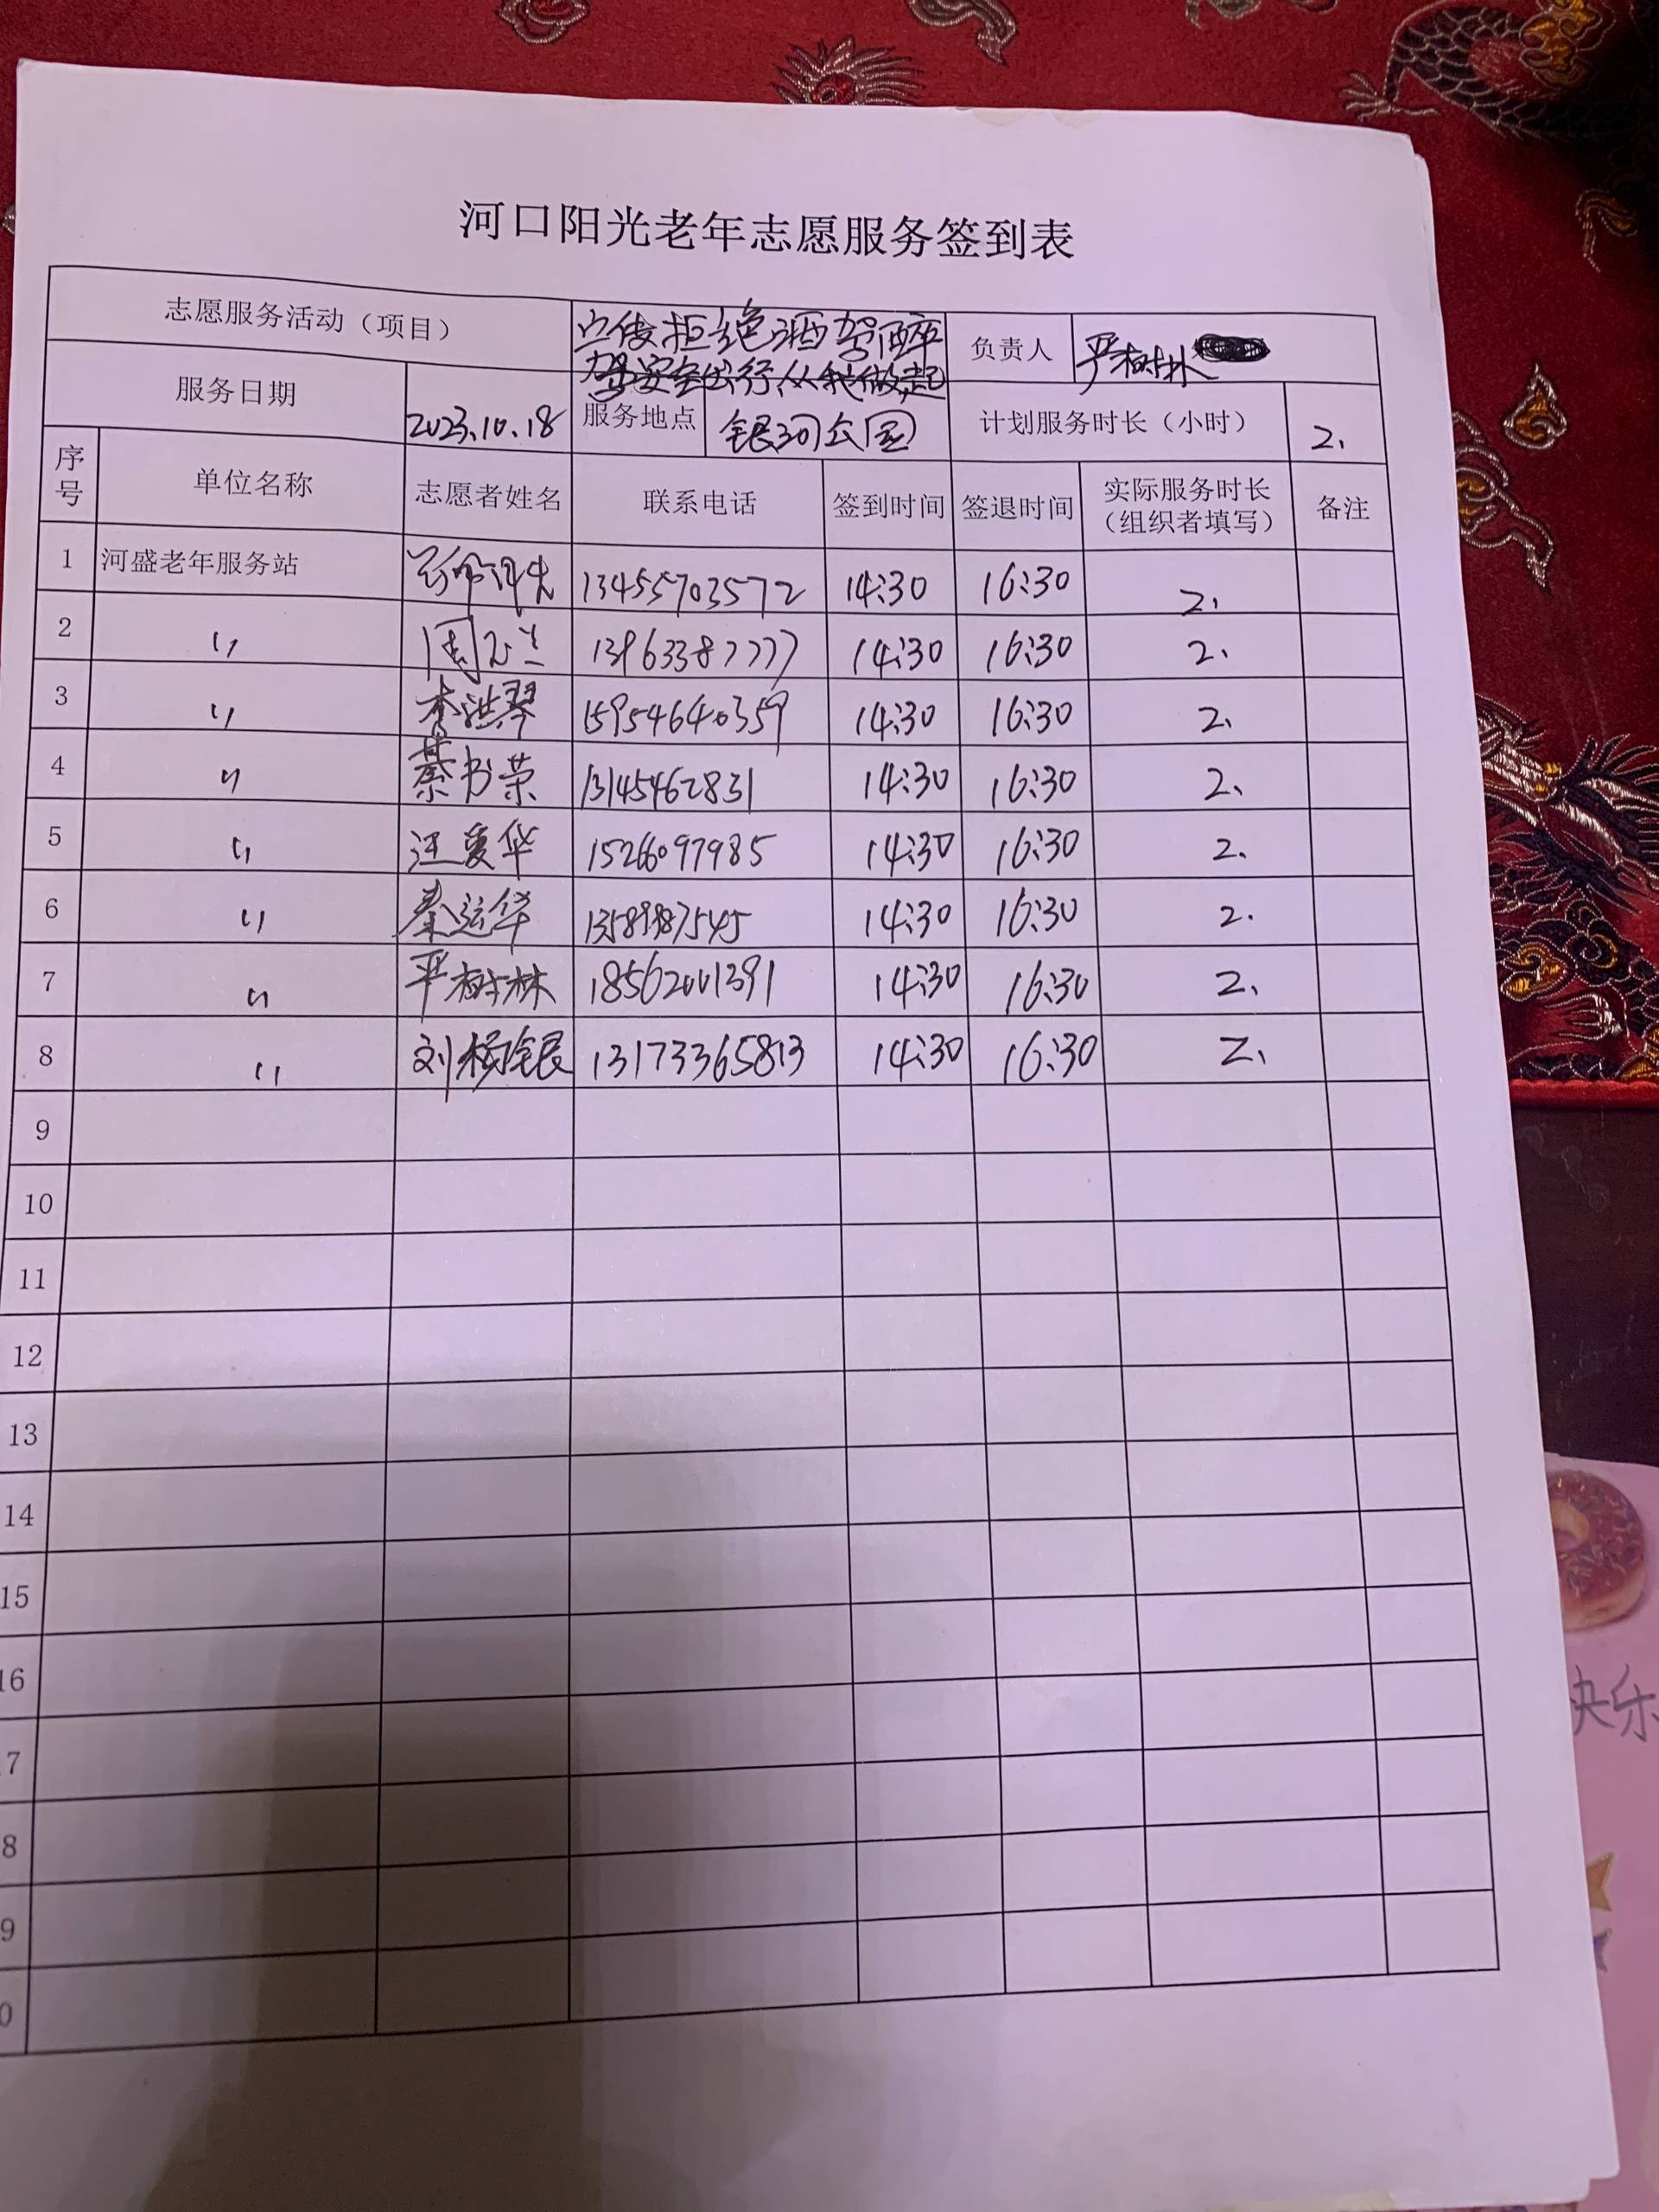 河口阳光老年志愿服务签到表
志愿服务活动（项目） 宣传拒绝酒驾醉 负责人 严树林
驾安全出行从我做起
服务日期 2023.10.18 服务地点 银河公园 计划服务时长（小时） 2.
序号 单位名称 志愿者姓名 联系电话 签到时间 签退时间 实际服务时长（组织者填写） 备注
1 河盛老年服务站 13455703572 14:30 16:30 2.
2 〃 周玉兰 13963387777 14:30 16:30 2.
3 〃 李洪琴 15954640359 14:30 16:30 2.
4 〃 綦书荣 13145462831 14:30 16:30 2.
5 〃 汪爱华 15266097985 14:30 16:30 2.
6 〃 秦运华 14:30 16:30 2.
7 〃 严树林 18562001391 14:30 16:30 2.
8 〃 刘杨全民 13173365813 14:30 16:30 2.
9
10
11
12
13
14
15
16
7
8
9
0
快乐